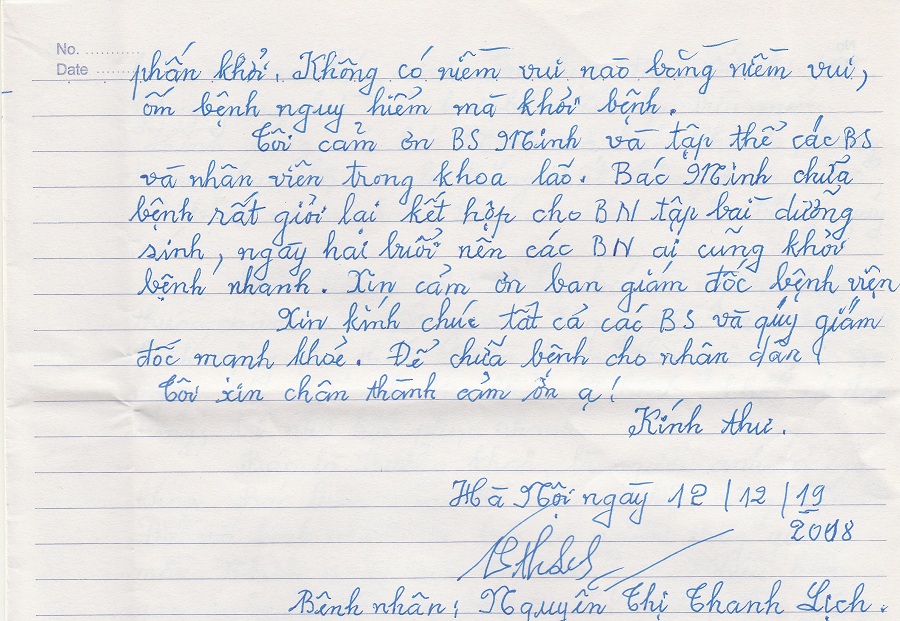 No. ............
Date ............
phấn khởi. Không có niềm vui nào bằng niềm vui,
ốm bệnh nguy hiểm mà khỏi bệnh.
Tôi cảm ơn BS Minh và tập thể các BS
và nhân viên trong khoa lão. Bác Minh chữa
bệnh rất giỏi lại kết hợp cho BN tập bài dưỡng
sinh, ngày hai buổi nên các BN ai cũng khỏi
bệnh nhanh. Xin cảm ơn ban giám đốc bệnh viện
Xin kính chúc tất cả các BS và quý giám
đốc mạnh khoẻ. Để chữa bệnh cho nhân dân!
Tôi xin chân thành cảm ơn ạ!
Kính thư.
Hà Nội ngày 12/12/19
2018
Bệnh nhân: Nguyễn Thị Thanh Lịch.